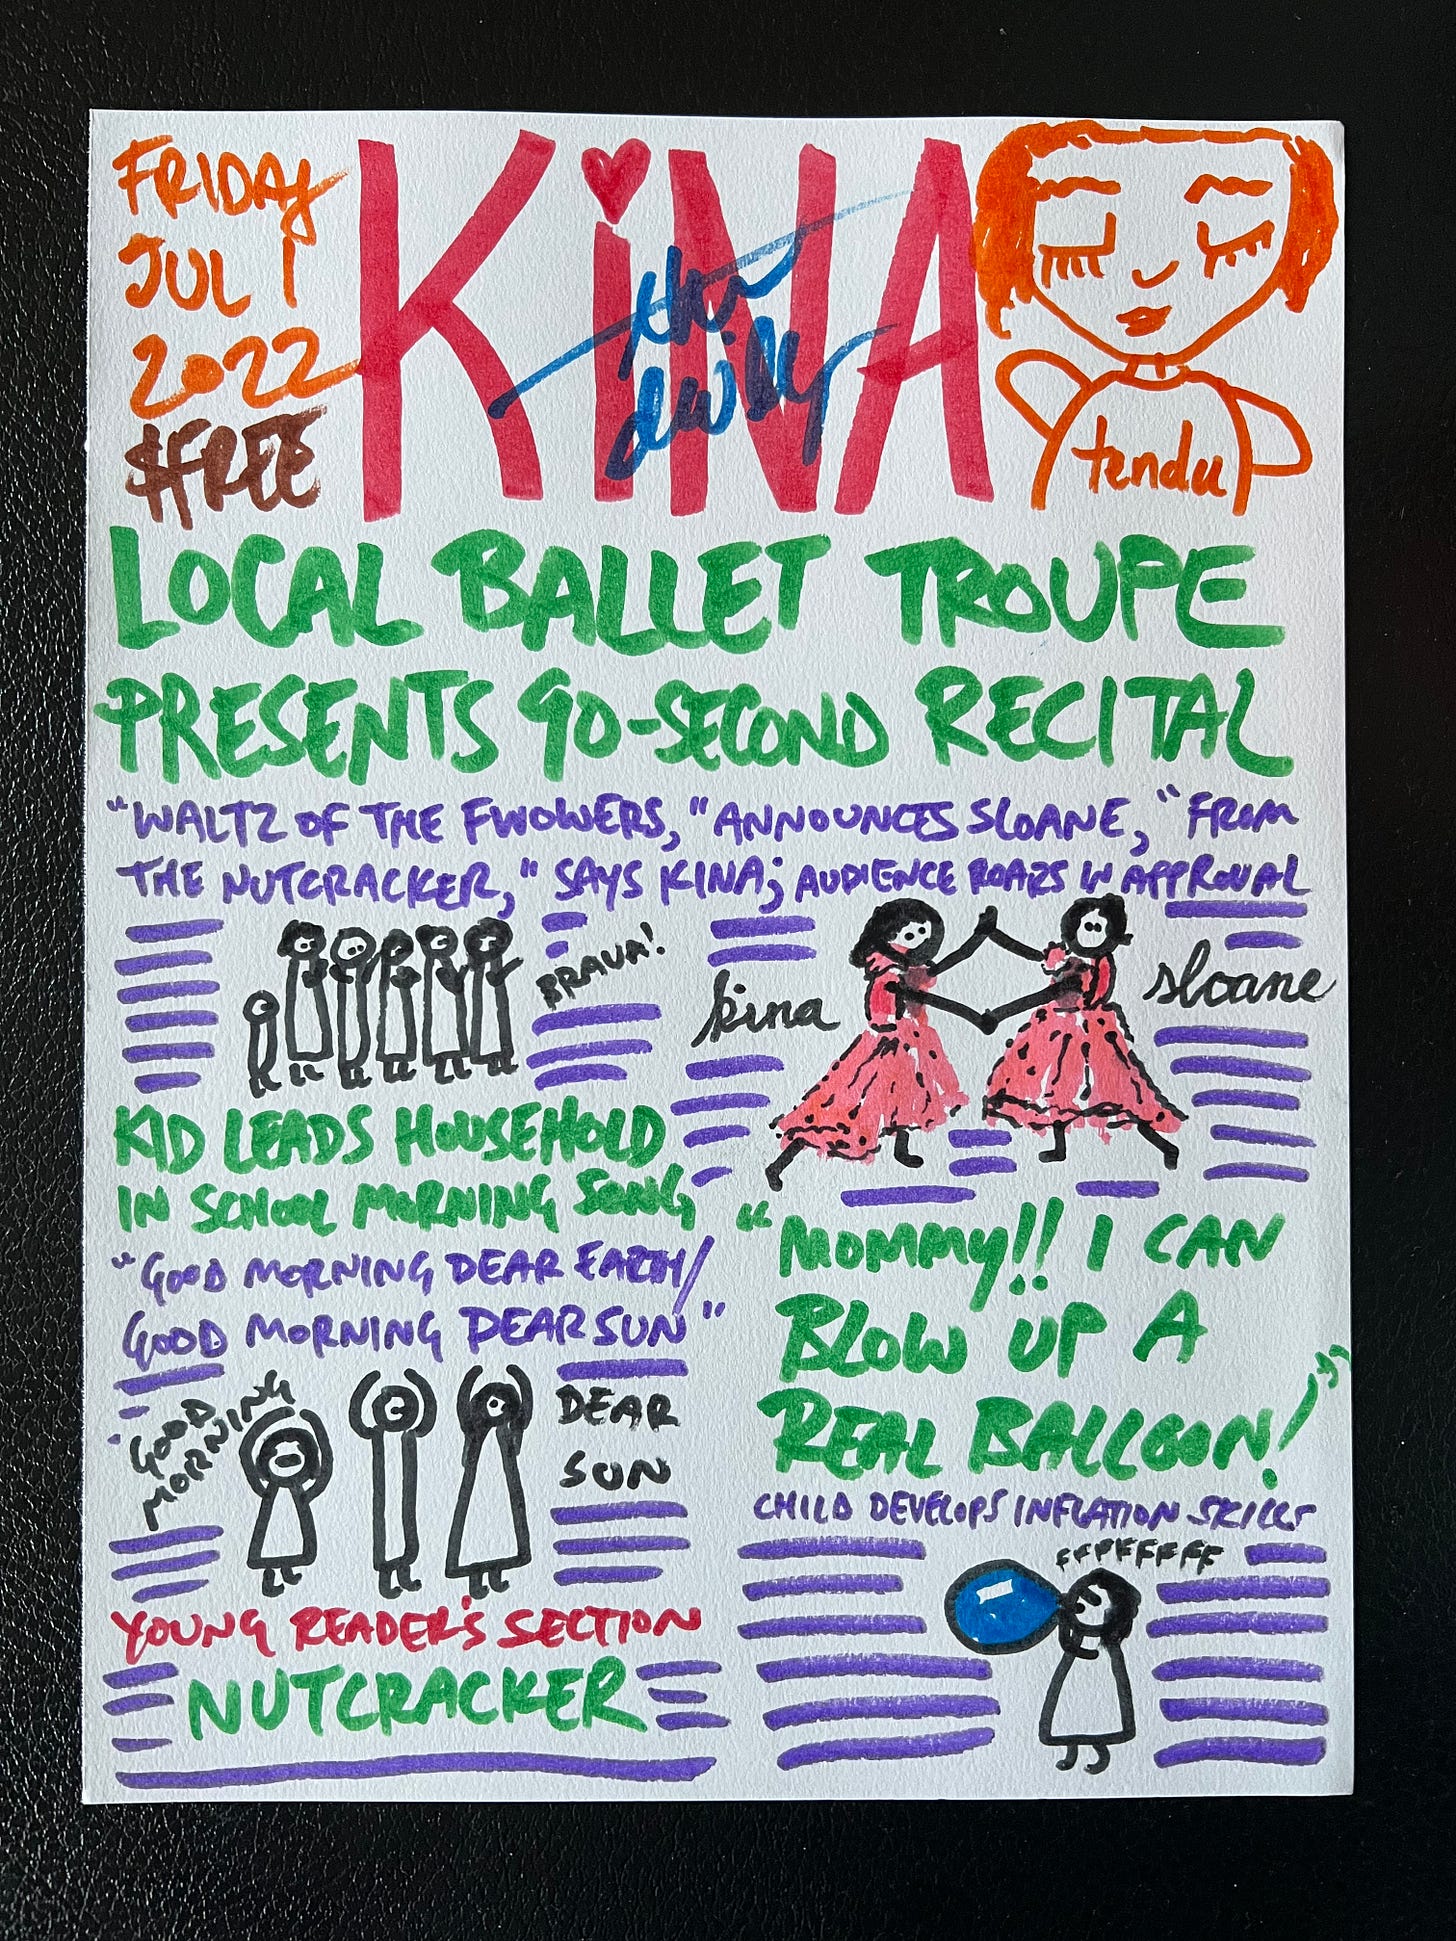 FRIDAY
JUL 1
2022
$FREE
KiNA
the daily
tendu
LOCAL BALLET TROUPE
PRESENTS 90-SECOND RECITAL
"WALTZ OF THE FWOWERS," ANNOUNCES SLOANE, "FROM
THE NUTCRACKER," SAYS KINA; AUDIENCE ROARS IN APPROVAL
BRAVA!
kina
sloane
KID LEADS HOUSEHOLD
IN SCHOOL MORNING SONG
"GOOD MORNING DEAR EARTH/
GOOD MORNING DEAR SUN"
GOOD
MORNING
DEAR
SUN
"MOMMY!! I CAN
BLOW UP A
REAL BALLOON!"
CHILD DEVELOPS INFLATION SKILLS
FFPFFFFF
YOUNG READER'S SECTION
NUTCRACKER